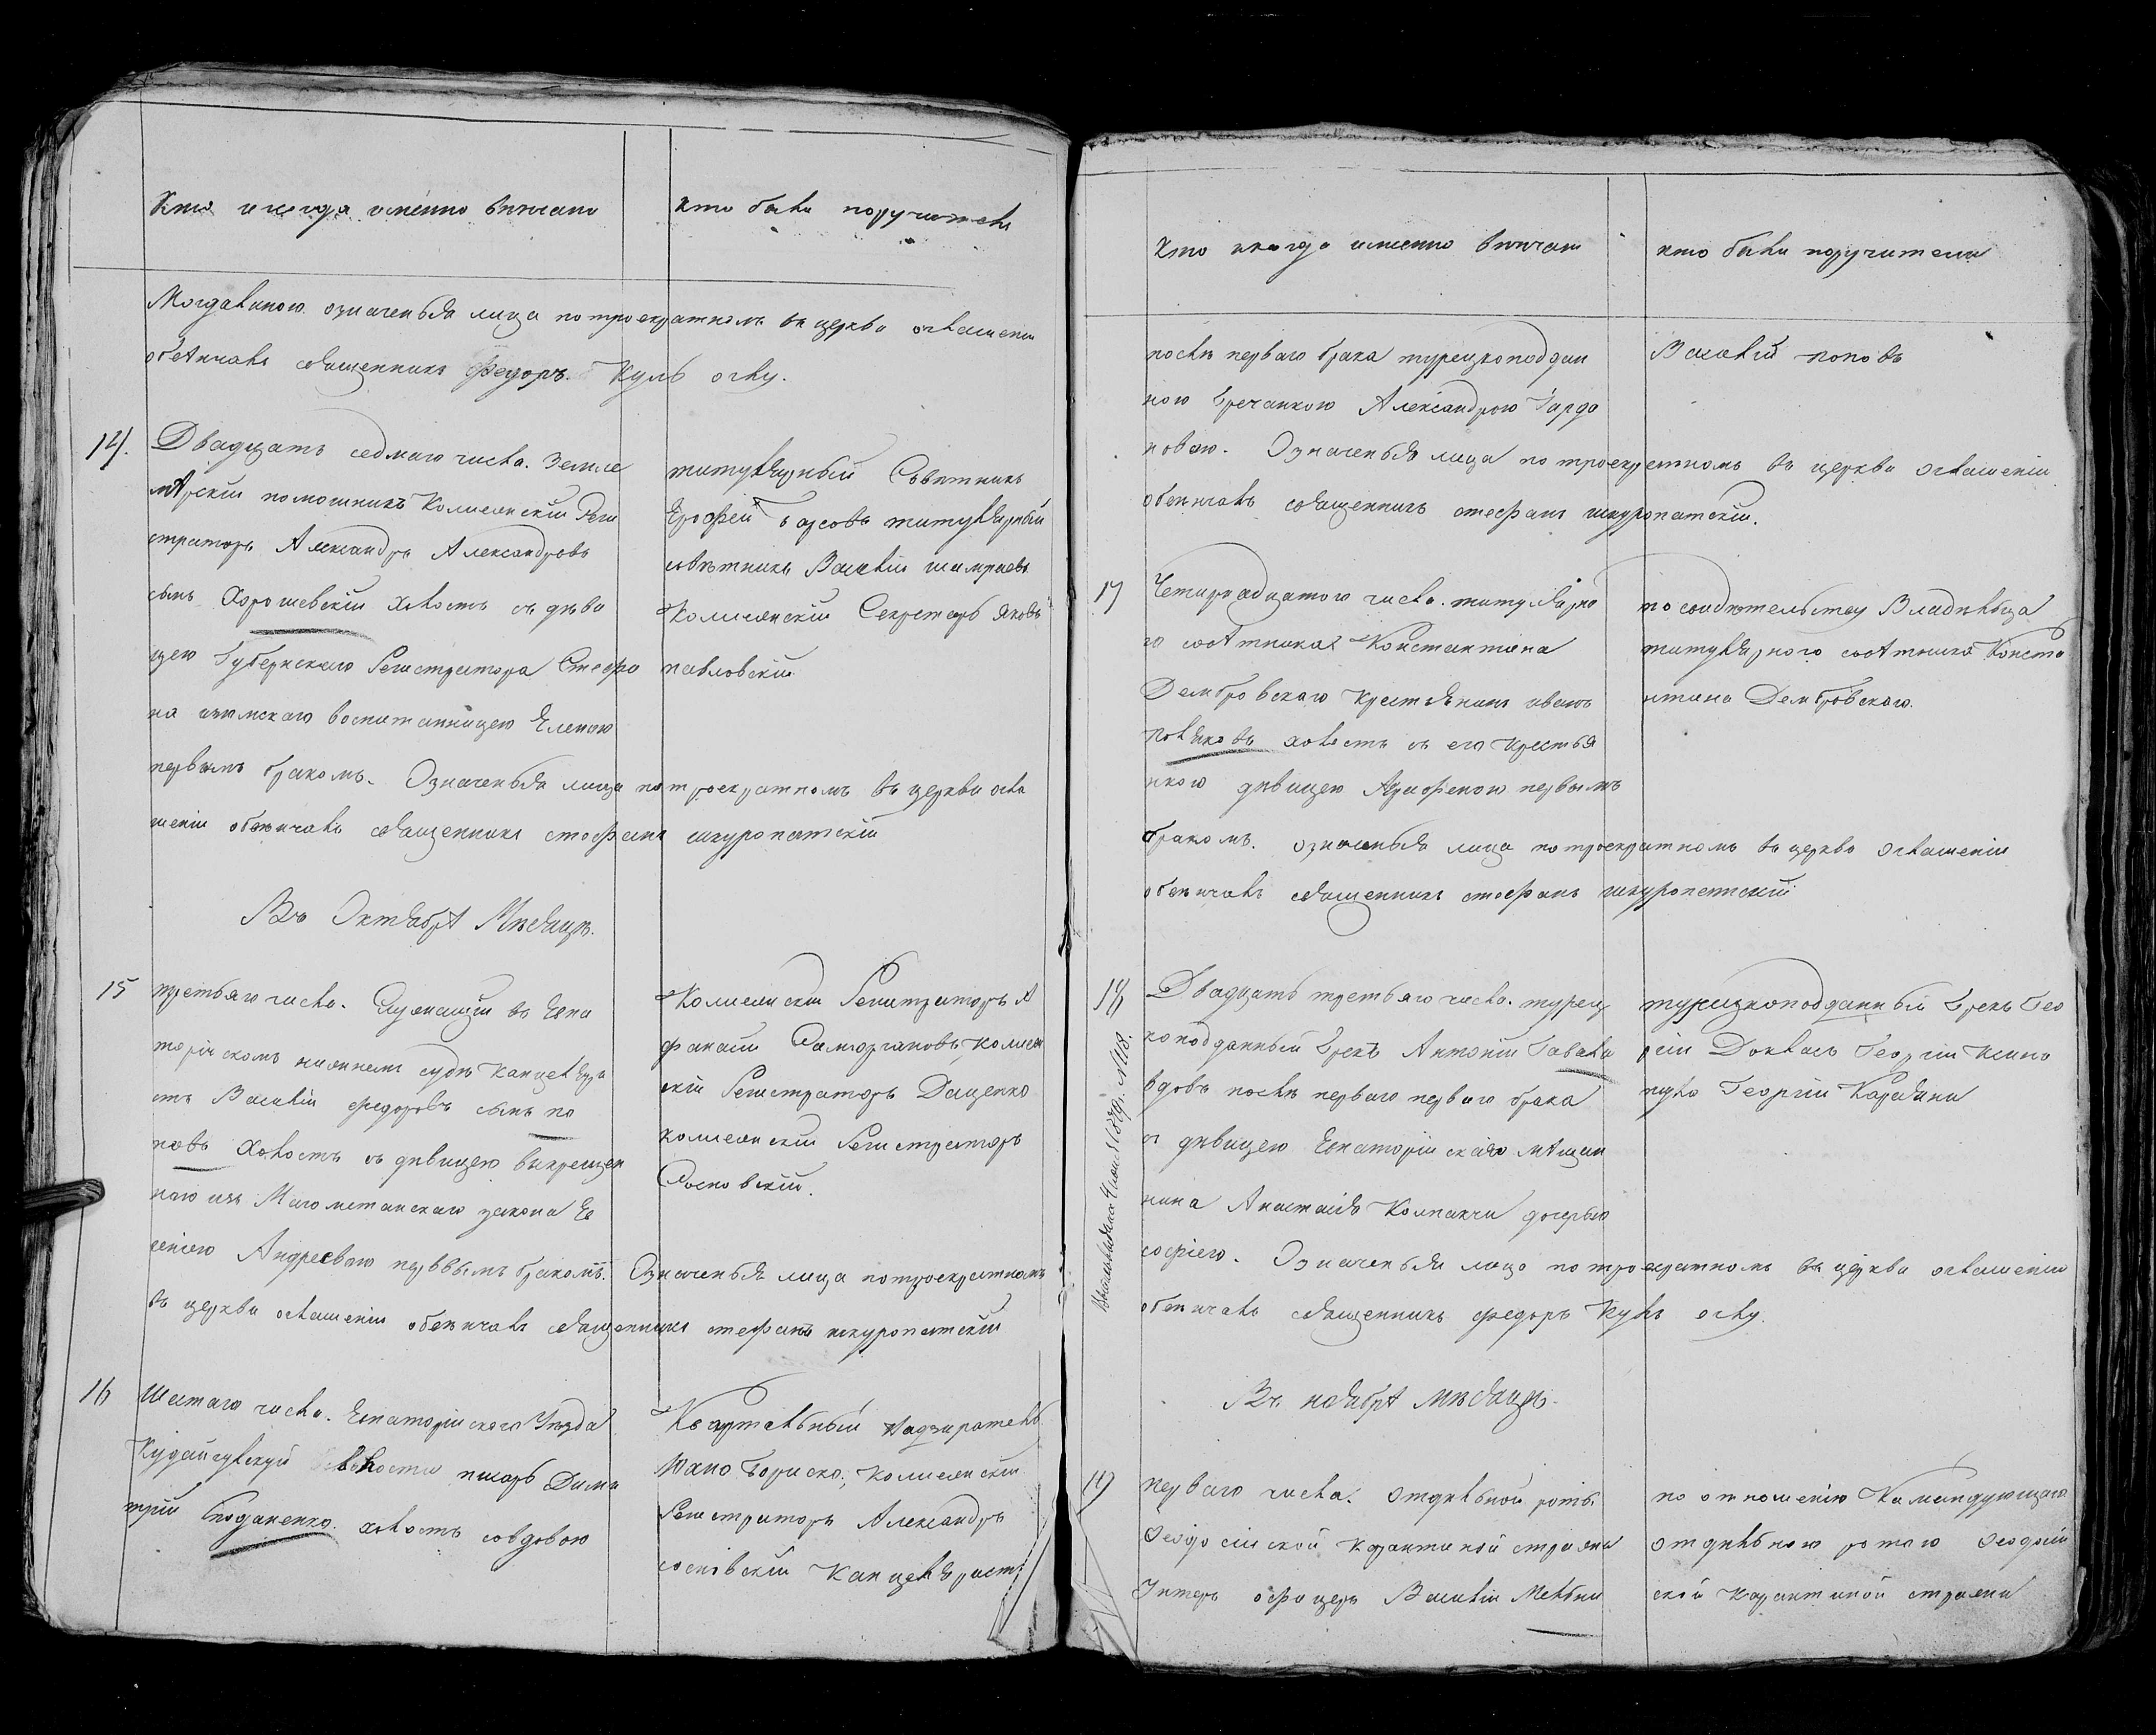 Кто и когда именно венчаны
кто были поручители
Могдавиною означеныя лица по троекратномъ въ церкви оглашеніи
обвѣнчалъ священникъ Федоръ Куль оглу.
14. Двадцать седмаго числа. Земле
мѣрскій помошникъ Колиежскій Реги
страторъ Александръ Александровъ
сынъ Хорошевскій холостъ съ дѣви
цею Губернскаго Регистратора Стефа
на изюмскаго воспитанницею Еленою
первымъ бракомъ. Означеныя лица по троекратномъ въ церкви огла
шеніи обвѣнчалъ священникъ стефанъ шкуропатскій
титулярный Совѣтникъ
Ерофей Барсовъ титулярный
совѣтникъ Василій
Колиежскій Секретарь яковъ
павловскій
Въ Октябрѣ Мѣсяцѣ.
15 третьяго числа. Служащій въ Евпа
торійскомъ нижнемъ судѣ канцеляри
стъ Василій федоровъ сынъ по
повъ холостъ съ дѣвицею выкрещен
ною изъ Магометанскаго закона Ев
генію Андреевою первымъ бракомъ. Означеныя лица по троекратномъ
въ церкви оглашеніи обвѣнчалъ священникъ стефанъ шкуропатскій
Колиежскій Регистраторъ А
фанасій Саморгановъ, колиеж
скій Регистраторъ Даценко
колиежскій Регистраторъ
Сосновскій.
16 Шестаго числа. Евпаторійскаго Уѣзда
Кудайгулской волости писарь Дими
трій Богданенко холостъ совдовою
Квартальный Надзиратель
Колиежскій
Регистраторъ Александръ
сосновскій Канцеляристъ
Кто и когда именно венчаны
кто были поручители
послѣ перваго брака турецкоподдан
ною Гречанкою Александрою Гарда
новою. Означеныя лица по троекратномъ въ церкви оглашеніи
обвѣнчалъ священникъ стефанъ шкуропатскій.
Василій поповъ
17 Четирнадцатого числа. титулярна
го совѣтника Константина
Дембровскаго крестьянинъ иванъ
Поляковъ холостъ съ его крестья
нкою дѣвицею Агрифеною первымъ
бракомъ. означеныя лица по троекратномъ въ церкви оглашеніи
обвѣнчалъ священникъ стефанъ шкуропатскій
по свидѣтельству Владѣльца
титулярного совѣтника Конста
нтина Дембровскаго.
18 Двадцать третьяго числа. турец
коподданный Грекъ Антоній Гавала
вдовъ послѣ перваго перваго брака
съ дѣвицею Евпаторійскаго мѣщан
нина Анастасія Компанчи дочерью
софіею. Означеныя лица по троекратномъ въ церкви оглашеніи
обвѣнчалъ священникъ федоръ Куль оглу.
турецкоподданный Грекъ Гео
ргій Доклась Георгій
Георгій Карадяни
Въ ноябрѣ мѣсяцѣ.
19 перваго числа. отдѣльной роты
Феодосійской карантиной стражи
Унтеръ офицеръ Василій Мельни
по отношенію Камандующаго
отдѣльною ротою Феодосій
ской карантиной стражи